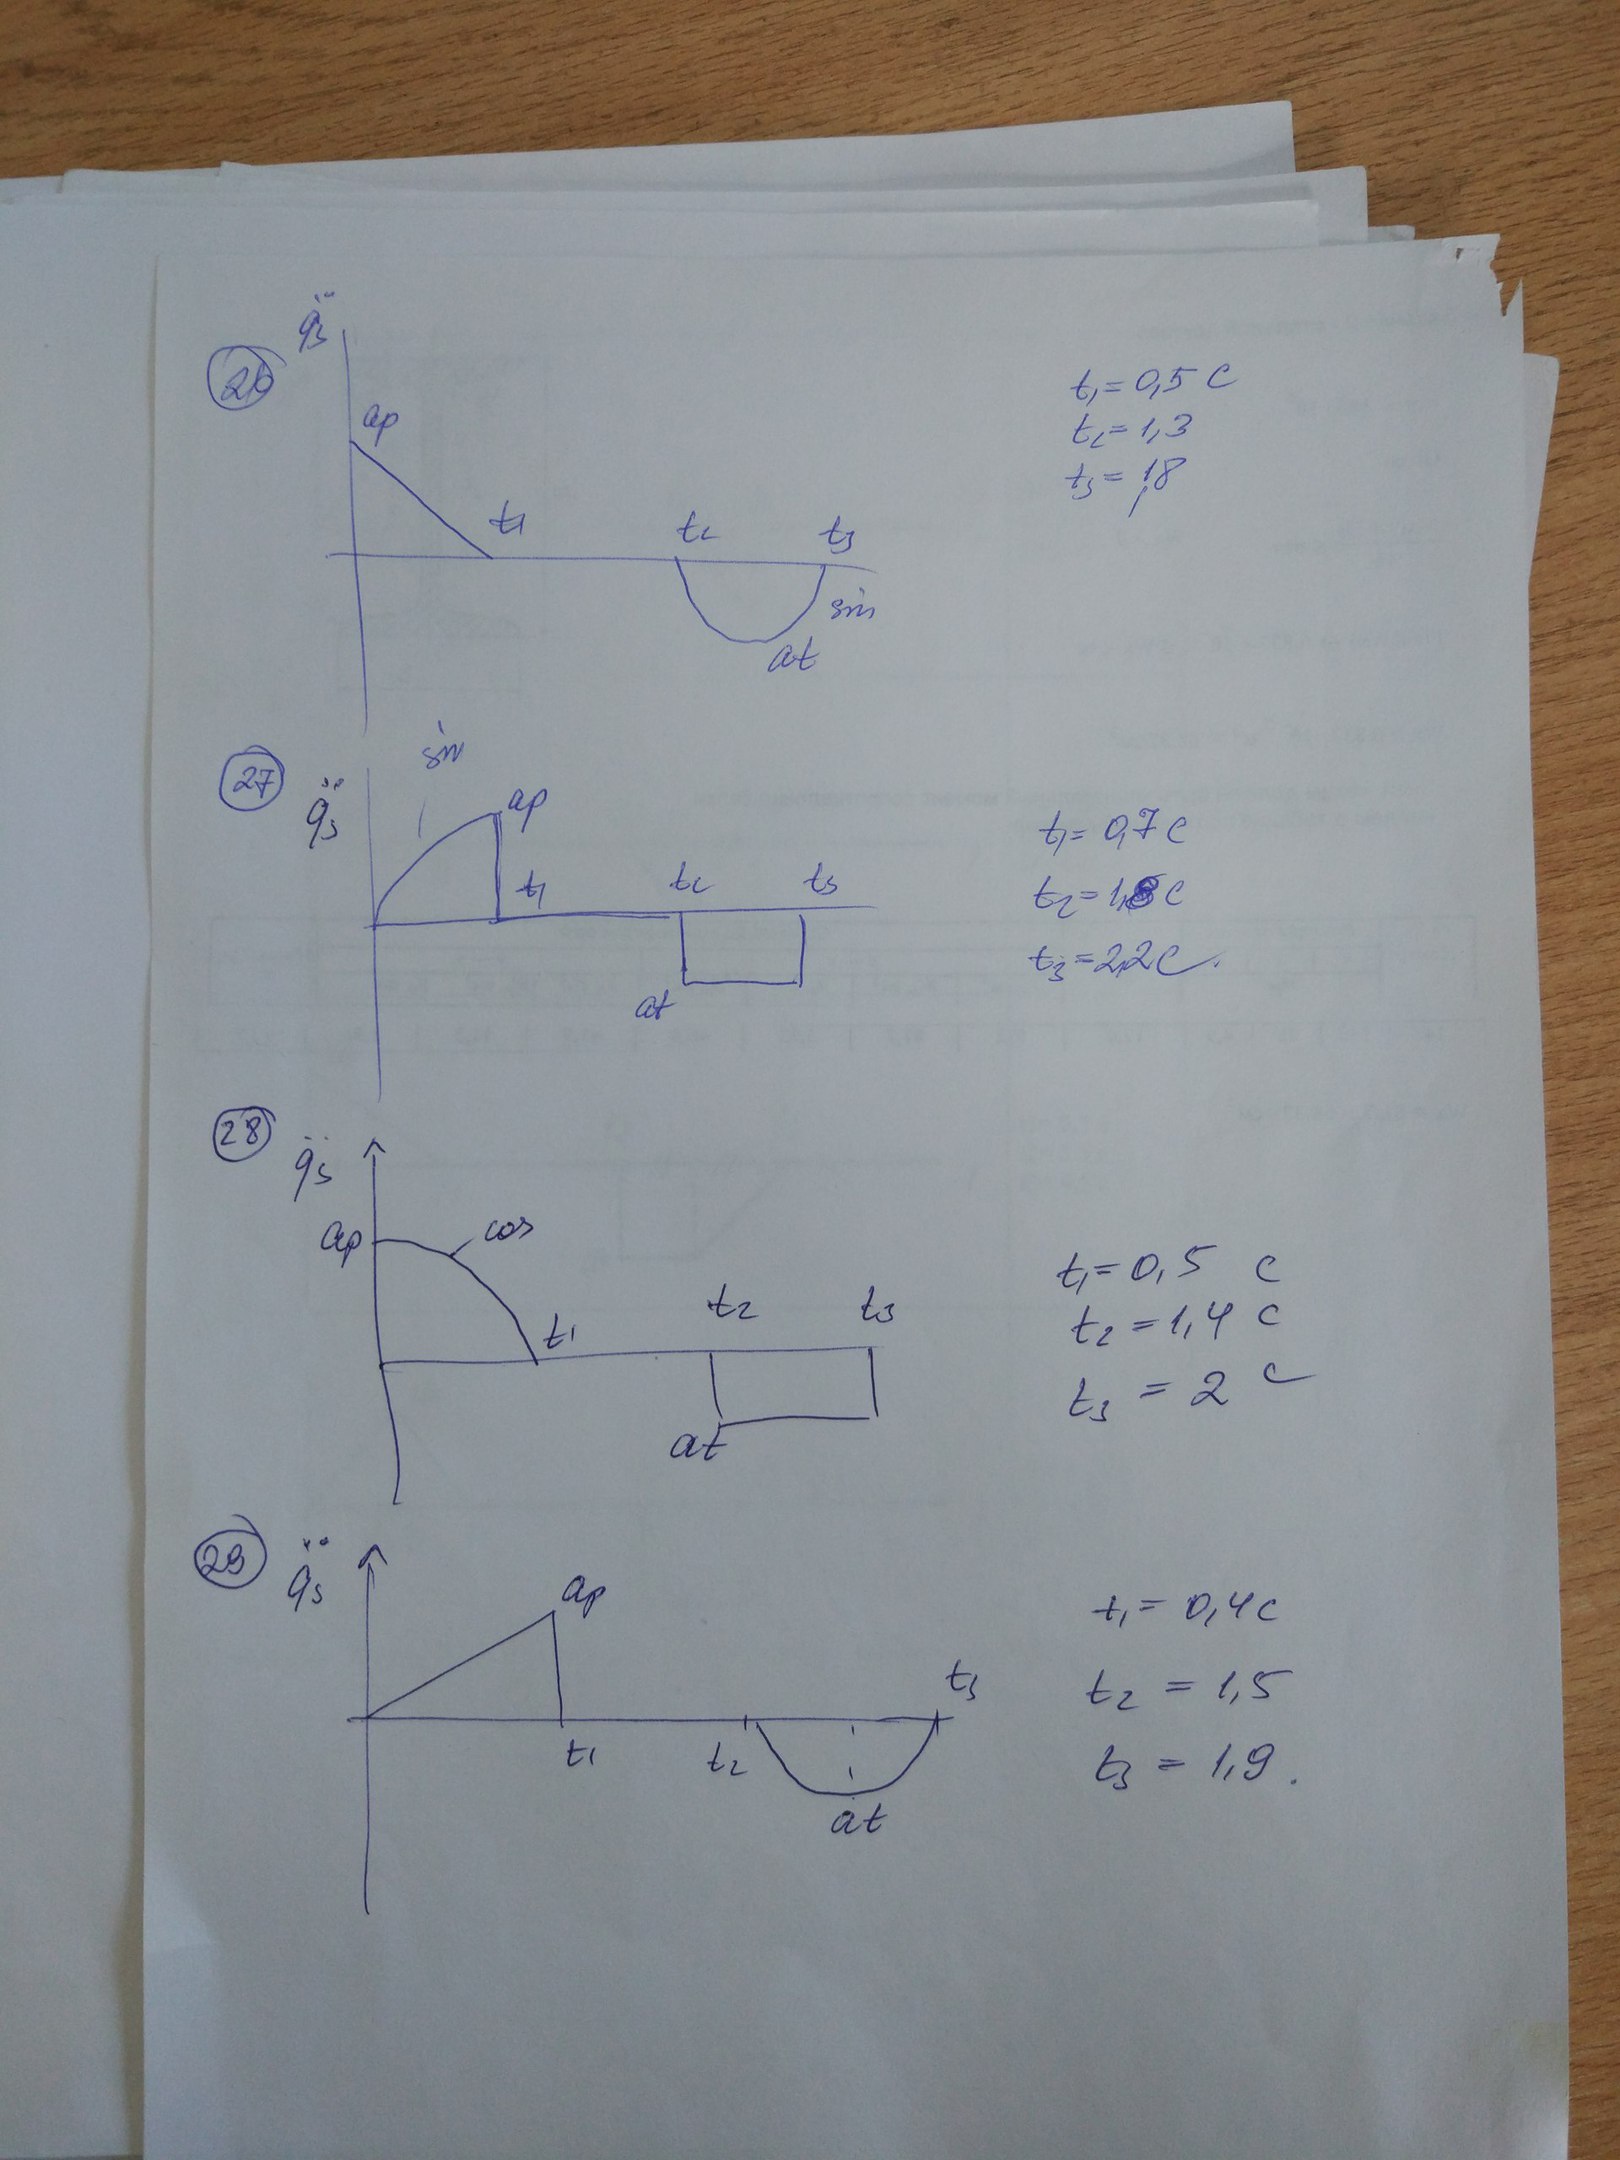 26
q̈₃
ap
t₁
t₂
t₃
sin
at
t₁= 0,5 c
t₂= 1,3
t₃= 1,8
27
q̈₃
sin
ap
t₁
t₂
t₃
at
t₁= 0,7 c
t₂= 1,8 c
t₃=2,2 c.
28
q̈₃
ap
cos
t₁
t₂
t₃
at
t₁= 0,5 c
t₂ =1,4 c
t₃ = 2 c
29
q̈₃
ap
t₁
t₂
t₃
at
t₁= 0,4 c
t₂ = 1,5
t₃ = 1,9.